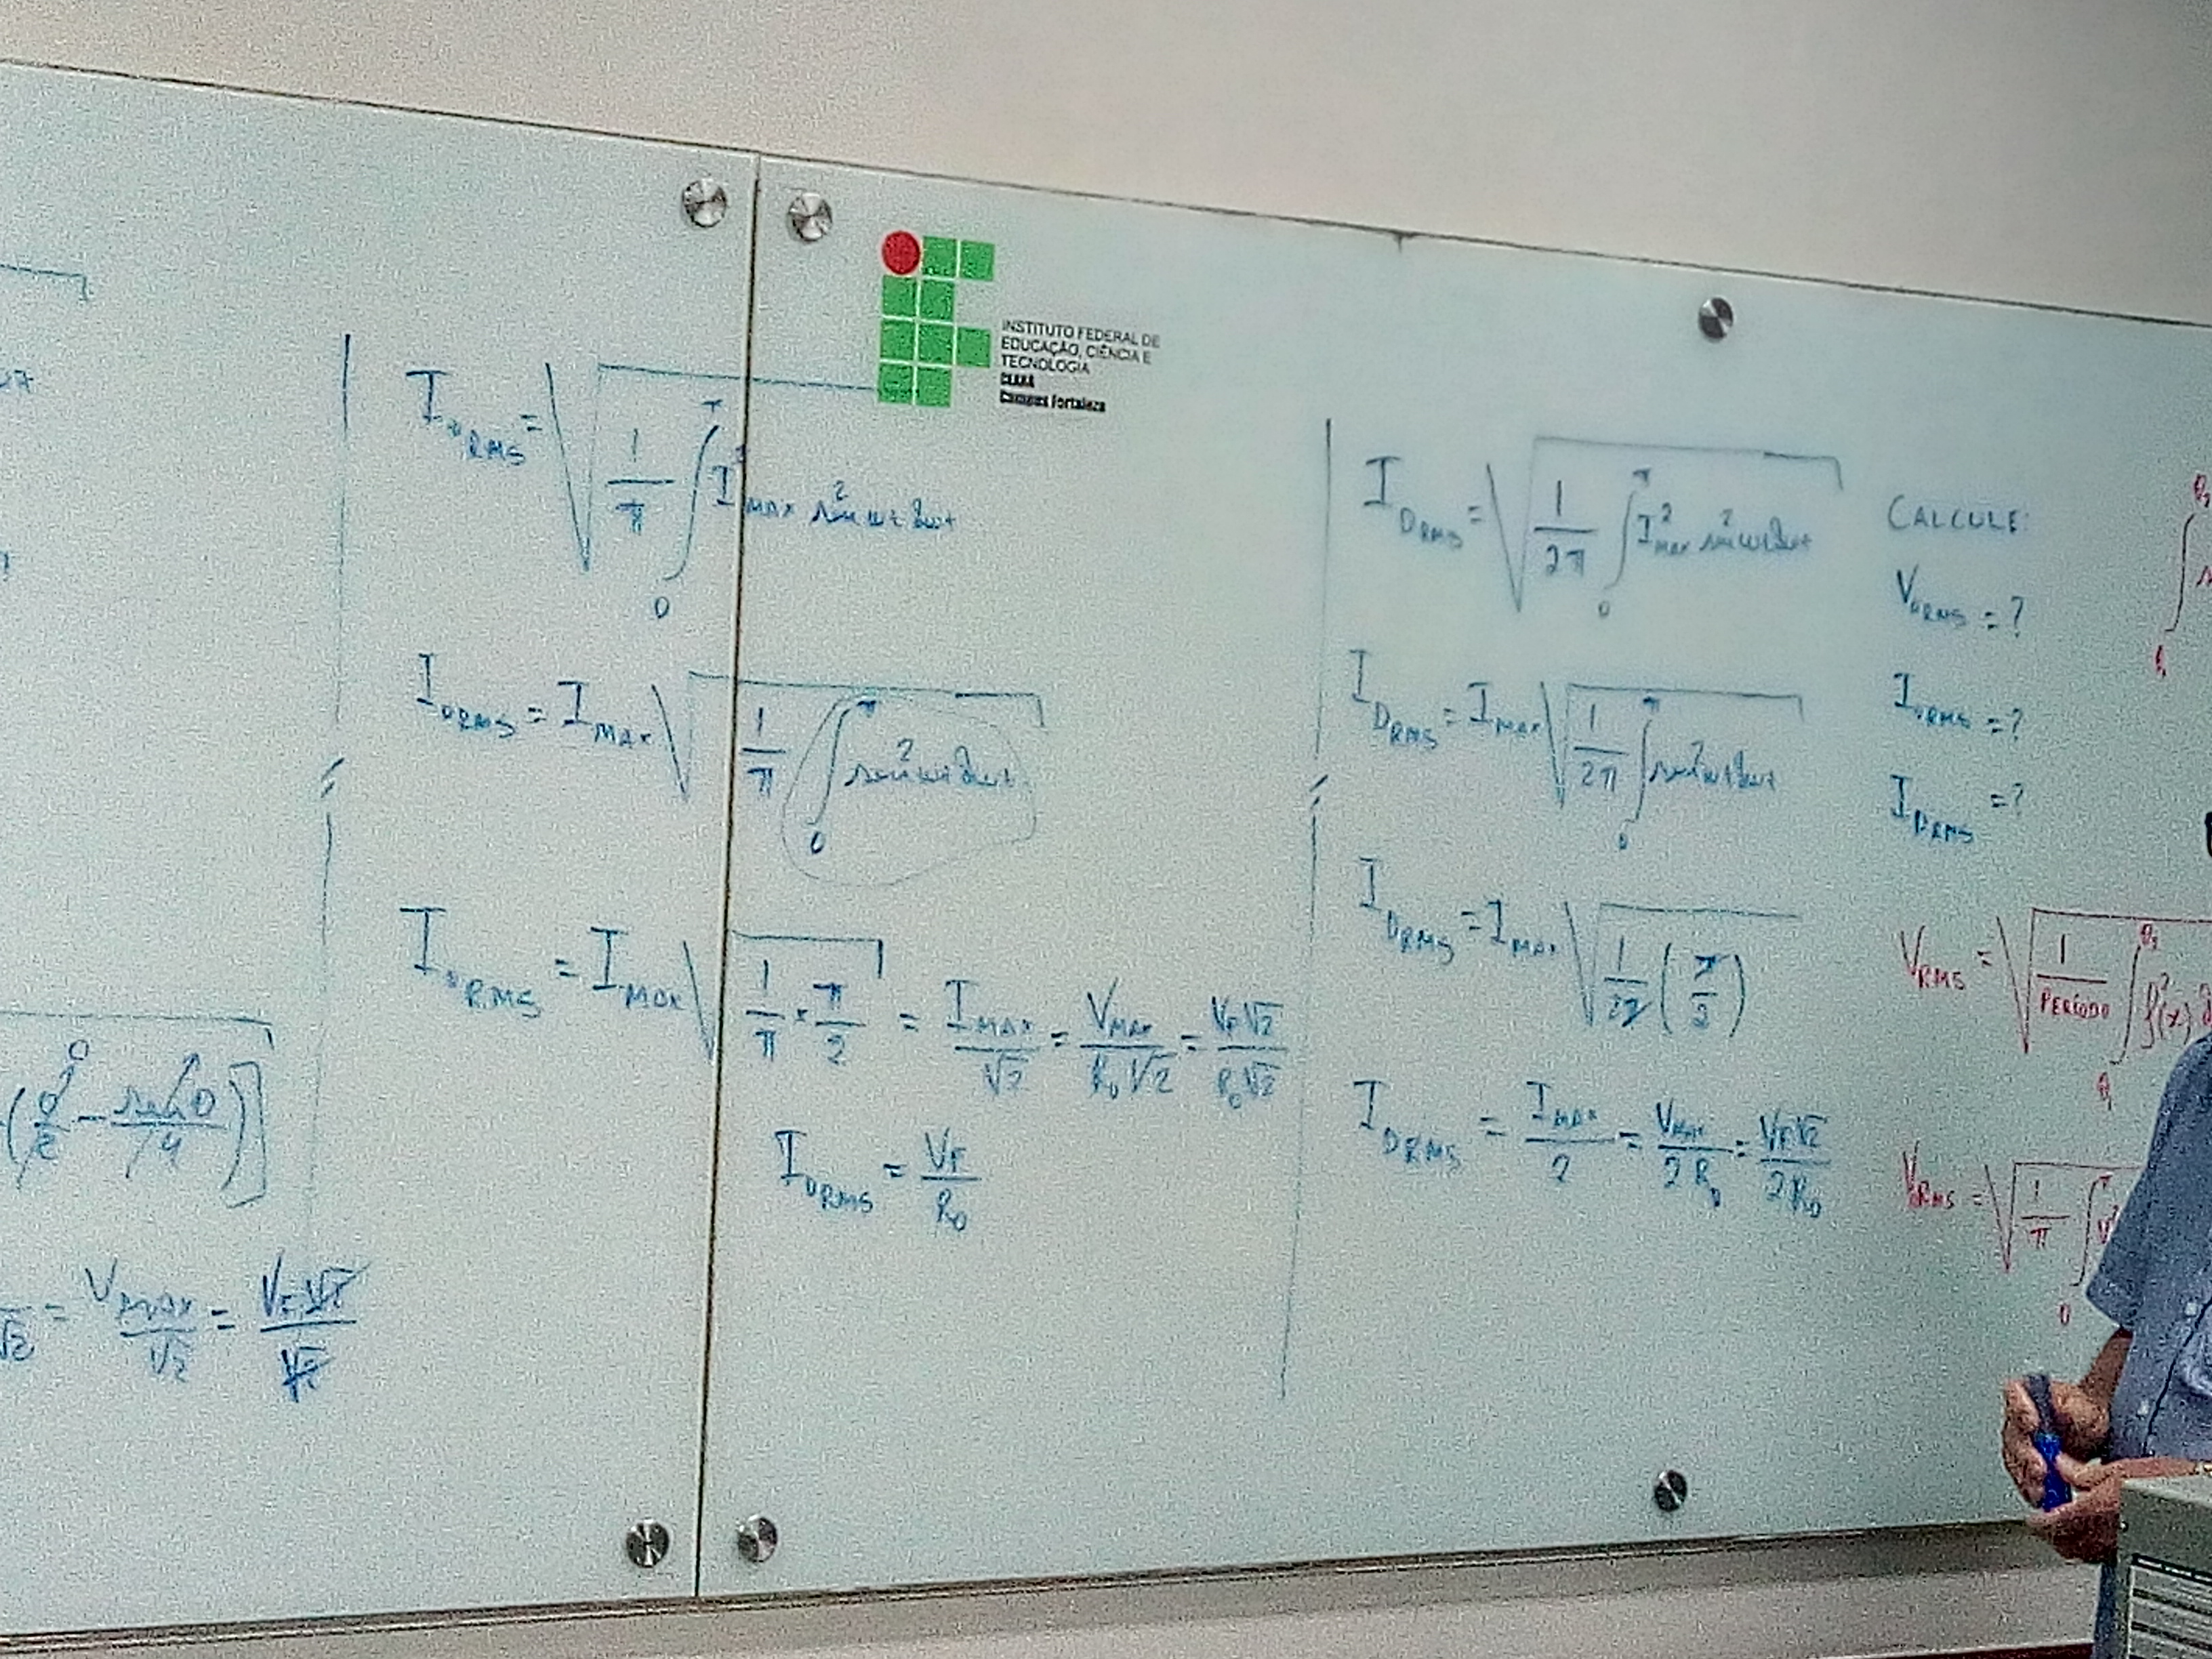 INSTITUTO FEDERAL DE
EDUCAÇÃO, CIÊNCIA E
TECNOLOGIA
CEARÁ
Campus Fortaleza
I_oRMS = √(1/π ∫_0^π I²_MAX sen² wt dwt
I_oRMS = I_MAX √(1/π ∫_0^π sen² wt dwt)
I_oRMS = I_MAX √(1/π × π/2) = I_MAX/√2 = V_MAX/(R_o √2) = V_F √2/(R_o √2)
I_oRMS = V_F/R_o
(0/2 - sen 0/4)]
√2 = V_MAX/√2 = V_F √2/√2
I_DRMS = √(1/2π ∫_0^π I²_MAX sen² wt dwt)
I_DRMS = I_MAX √(1/2π ∫_0^π sen² wt dwt)
I_DRMS = I_MAX √(1/2π (π/2))
I_DRMS = I_MAX/2 = V_MAX/2R_o = V_F √2/2R_o
CALCULE:
V_oRMS = ?
I_oRMS = ?
I_DRMS = ?
V_RMS = √(1/PERÍODO ∫_θ1^θ2 f²(x) d
V_oRMS = √(1/π ∫_0^π V²